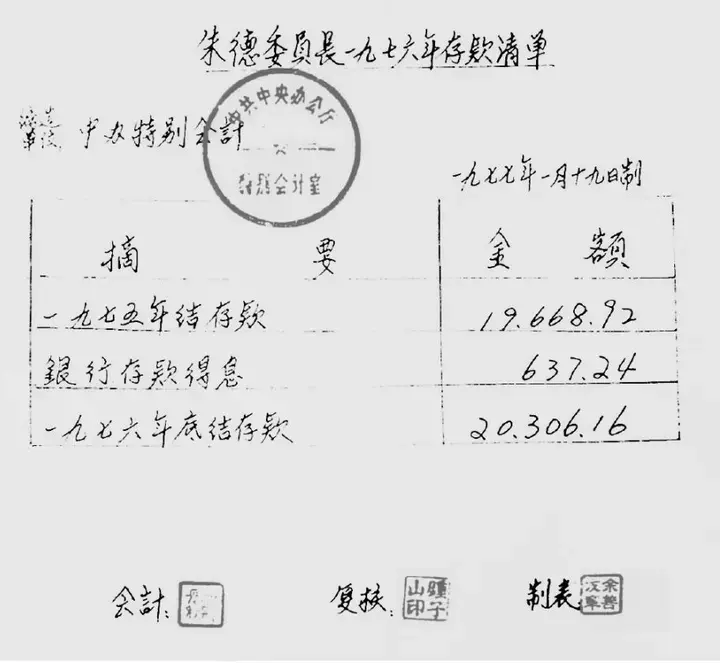 朱德委員長一九七六年存款清单
中共中央办公厅
特别会计室
中办特别会計
一九七七年一月十九日制
摘 要 金 额
一九七五年结存款 19.668.92
銀行存款得息 637.24
一九七六年底结存款 20.306.16
会計: 复核: 制表
山印 子
余善